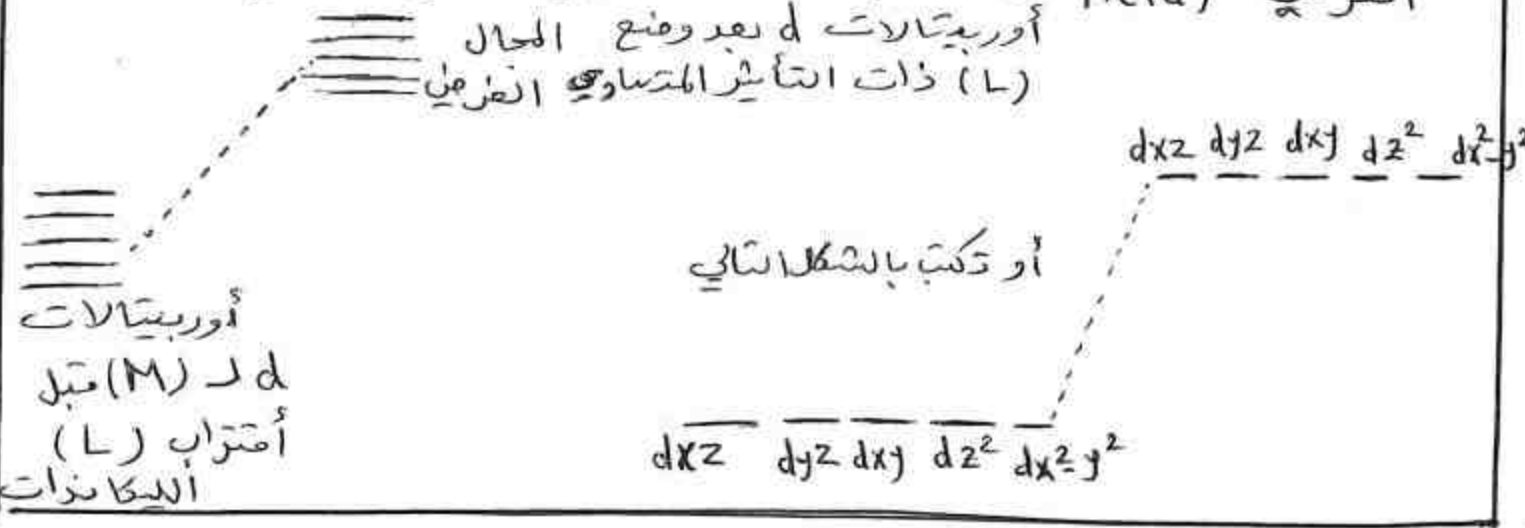 أوربيتالات d بعد وضع المجال
(L) ذات التأثير المتساوي الفرضي
dxz dyz dxy dz² dx²-y²
أو تكتب بالشكل التالي
أوربيتالات
d لـ (M) قبل
أقتراب (L)
الليكاندات
dxz dyz dxy dz² dx²-y²